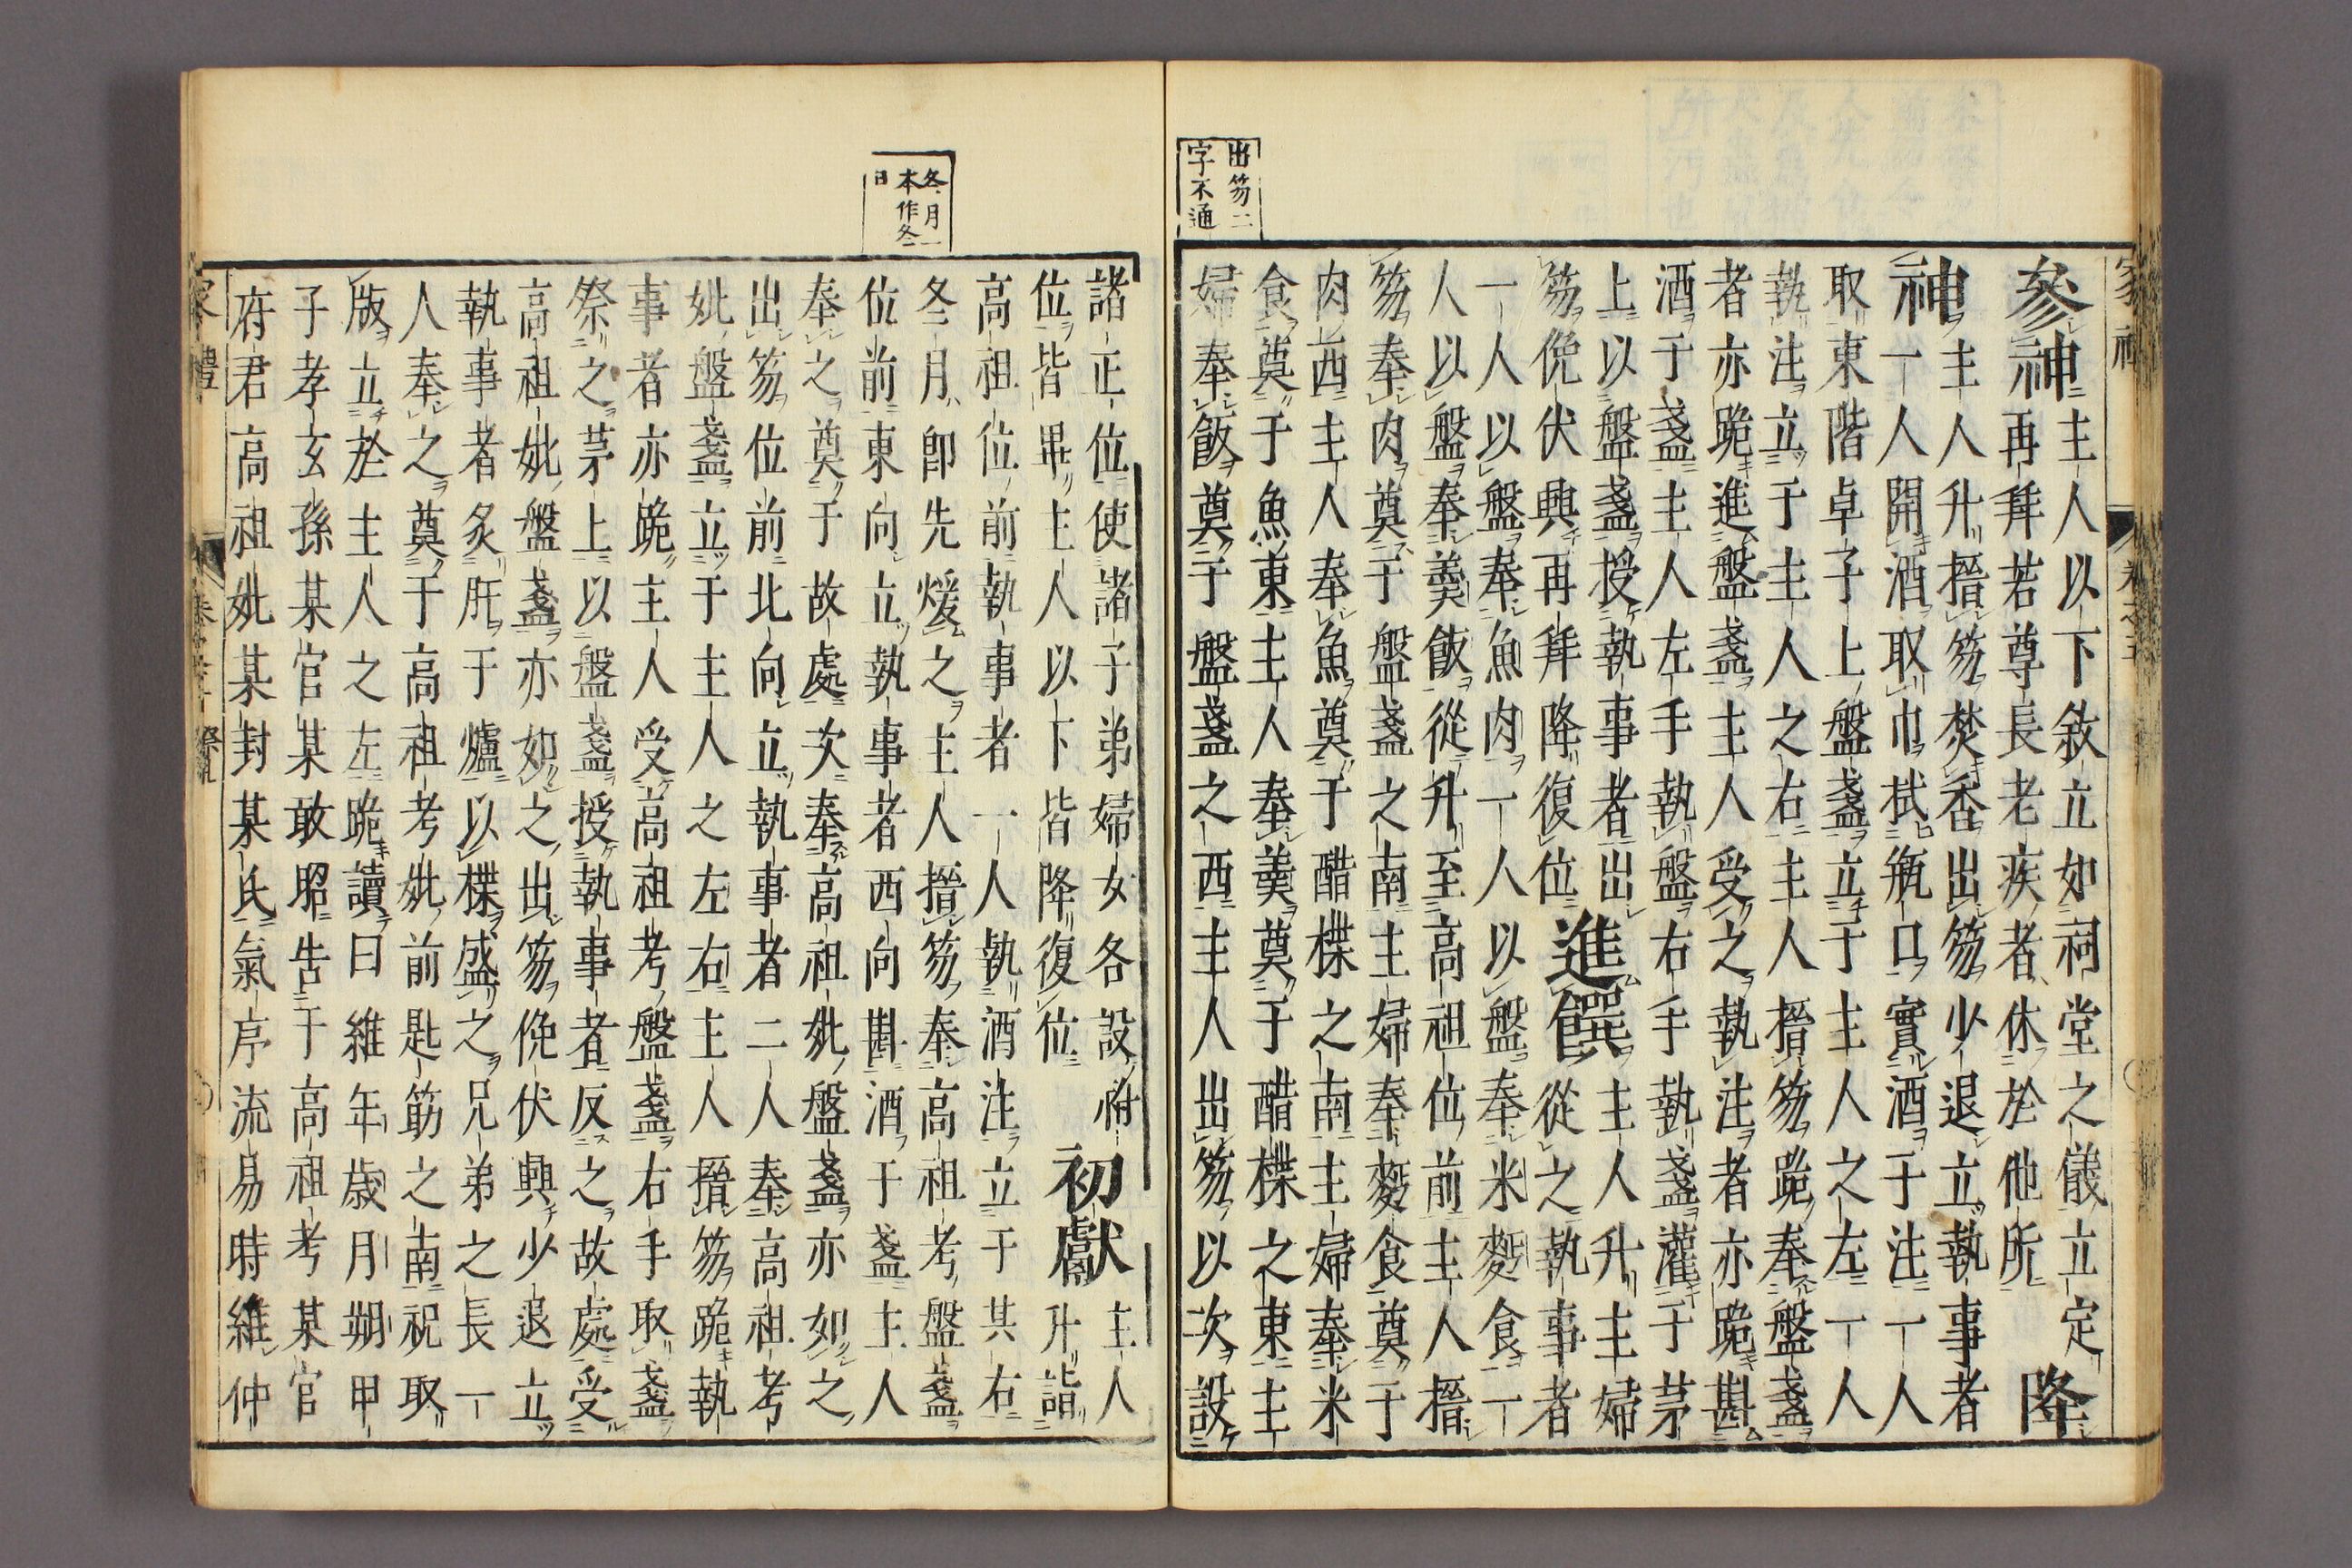 家禮
卷之五
出笏二
字不通
參神
主人以下敘立如祠堂之儀立定
再拜若尊長老疾者休於他所
降神
主人升搢笏焚香出笏少退立執事者
一人開酒取巾拭瓶口實酒于注一人
取東階卓子上盤盞立于主人之左一人
執注立于主人之右主人搢笏跪奉盤盞
者亦跪進盤盞主人受之執注者亦跪斟
酒于盞主人左手執盤右手執盞灌于茅
上以盤盞授執事者出
笏俛伏興再拜降復位
進饌
主人升主婦
從之執事者
一人以盤奉魚肉一人以盤奉米麪食一
人以盤奉羹飯從升至高祖位前主人搢
笏奉肉奠于盤盞之南主婦奉麪食奠于
肉西主人奉魚奠于醋楪之南主婦奉米
食奠于魚東主人奉羹奠于醋楪之東主
婦奉飯奠于盤盞之西主人出笏以次設
冬月一
本作冬
日
諸正位使諸子弟婦女各設祔
位皆畢主人以下皆降復位
初獻
主人
升詣
高祖位前執事者一人執酒注立于其右
冬月即先煖之主人搢笏奉高祖考盤盞
位前東向立執事者西向斟酒于盞主人
奉之奠于故處次奉高祖妣盤盞亦如之
出笏位前北向立執事者二人奉高祖考
妣盤盞立于主人之左右主人搢笏跪執
事者亦跪主人受高祖考盤盞右手取盞
祭之茅上以盤盞授執事者反之故處受
高祖妣盤盞亦如之出笏俛伏興少退立
執事者炙肝于爐以楪盛之兄弟之長一
人奉之奠于高祖考妣前匙筯之南祝取
版立於主人之左跪讀曰維年歲月朔甲
子孝玄孫某官某敢昭告于高祖考某官
府君高祖妣某封某氏氣序流易時維仲
家禮